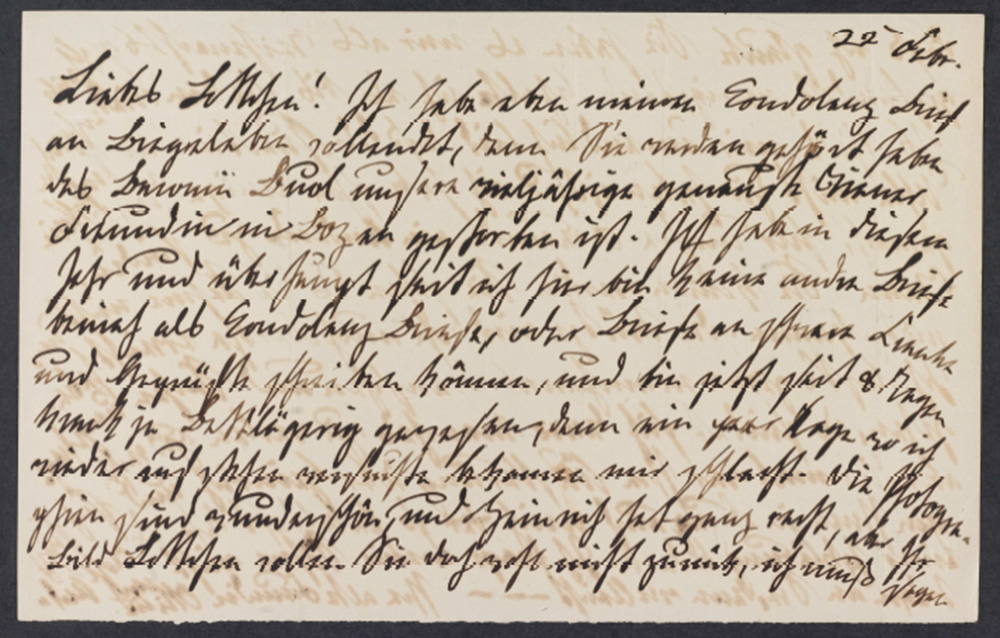 22 Febr.
Liebes Lottchen! Ich habe eben meinen Condolenz Brief
an Biegeleben vollendet, denn Sie werden gehört haben
das Baronin Buol unsere vieljährige Wiener
Freundin in Bozen gestorben ist. Ich habe in diesem
Jahr und überhaupt seit ich hier bin keine andre Briefe
beinah als Condolenz Briefe, oder Briefe an
und schreiben können, und bin jetzt seit 8 Tagen
krank ja Bettlägerig gewesen, denn ein paar Tage wo ich
wieder aufstehen versuchte bekamen mir schlecht. Die Photogra-
phien sind wunderschön, und Heinrich hat ganz recht, aber Ihr
Bild Lottchen sollen Sie doch nicht zurück, ich muß
sagen